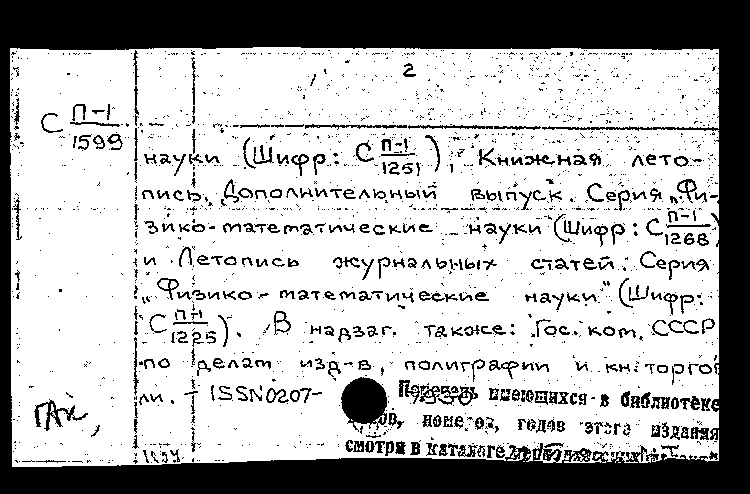 2
С П-1
1599
науки (Шифр: С П-1/1251), Книжная лето-
пись. Дополнительный выпуск. Серия „Фи-
зико-математические науки (Шифр: С П-1/1268)
и Летопись журнальных статей. Серия
„Физико-математические науки" (Шифр:
С П-1/1225). В надзаг. также: Гос. ком. СССР
по делам изд-в, полиграфии и кн. торгов
ли. - ISSN0207-
Перечень имеющихся в библиотеке
номеров, годов этого издания
смотри в каталоге